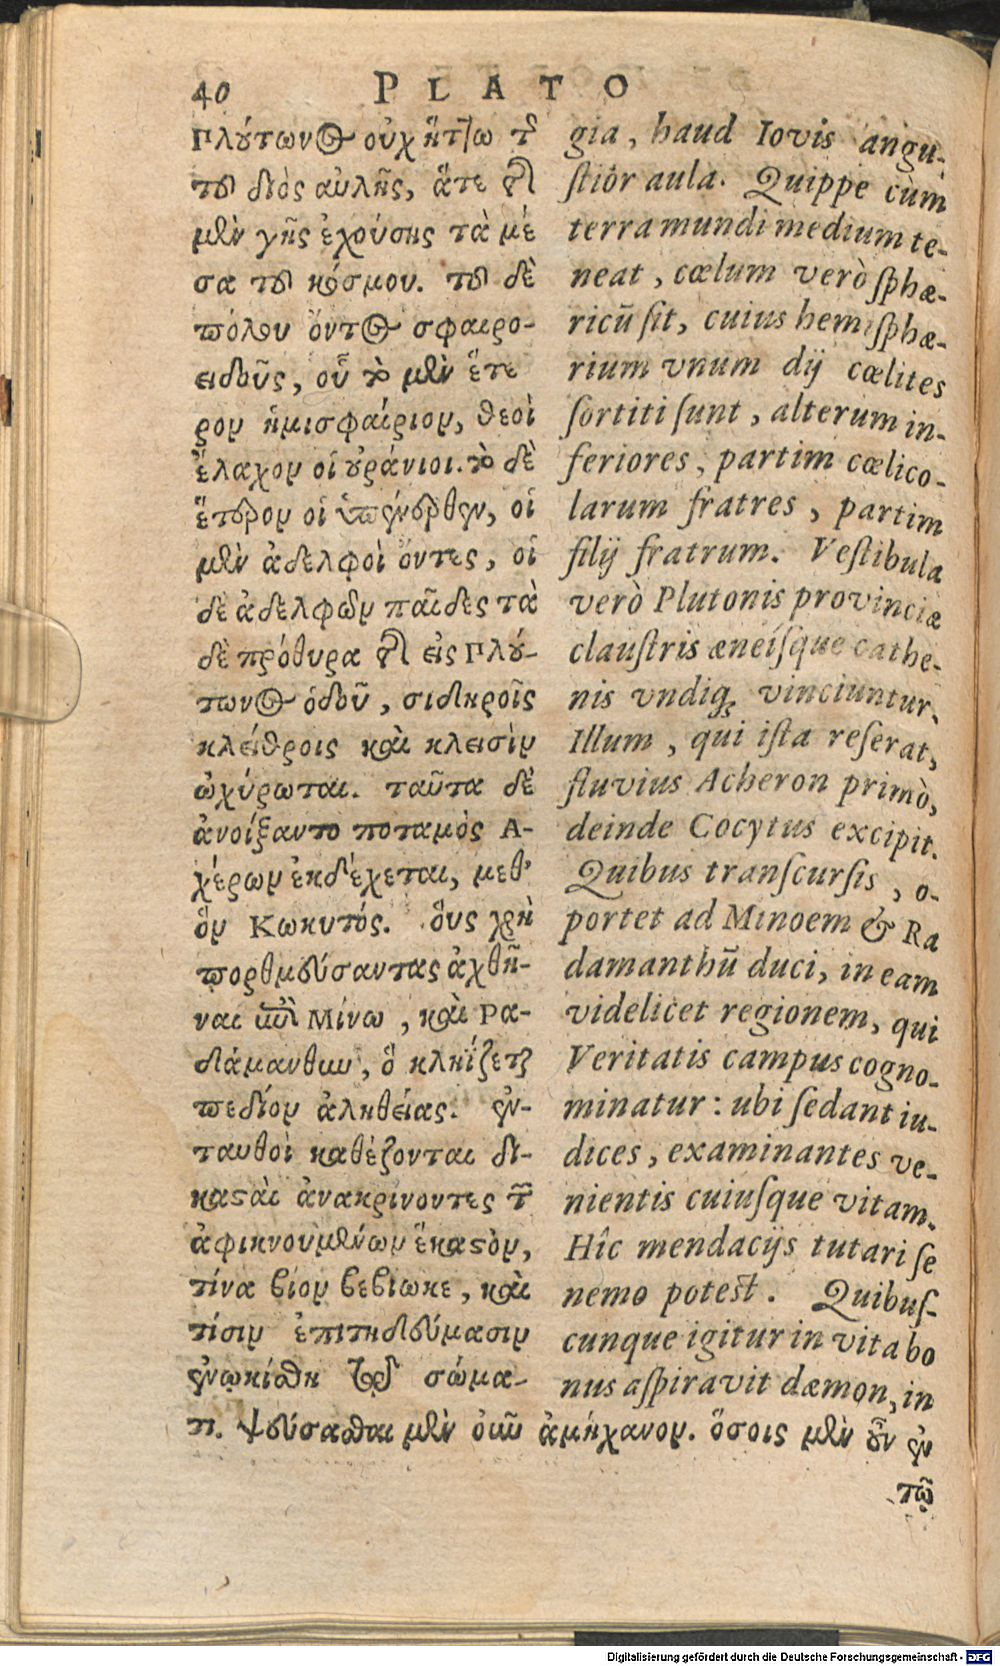 40 PLATO
Πλούτωνος οὐχ ἥττω τῆς
τοῦ Διὸς αὐλῆς, ἅτε τῆς
μὲν γῆς ἐχούσης τὰ μέ
σα τοῦ κόσμου. τοῦ δὲ
πόλου ὄντος σφαιρο-
ειδοῦς, οὗ τὸ μὲν ἕτε
ρον ἡμισφαίριον, θεοὶ
ἔλαχον οἱ οὐράνιοι. τὸ δὲ
ἕτερον οἱ ὑπένερθεν, οἱ
μὲν ἀδελφοὶ ὄντες, οἱ
δὲ ἀδελφῶν παῖδες τὰ
δὲ πρόθυρα τῆς εἰς Πλού-
τωνος ὁδοῦ, σιδηροῖς
κλείθροις καὶ κλεισὶν
ὠχύρωται. ταῦτα δὲ
ἀνοίξαντα ποταμὸς Α-
χέρων ἐκδέχεται, μεθ'
ὃν Κωκυτός. οὓς χρὴ
πορθμεύσαντας ἀχθῆ-
ναι ἐπὶ Μίνω, καὶ Ρα-
δάμανθυν, ὃ κληΐζεται
πεδίον ἀληθείας. ἐν-
ταυθοῖ καθέζονται δι-
καςαὶ ἀνακρίνοντες τῶν
ἀφικνουμένων ἕκαςον,
τίνα βίον βεβίωκε, καὶ
τίσιν ἐπιτηδεύμασιν
ἐνῳκίσθη τῷ σώμα-
τι. ψεύσασθαι μὲν οὖν ἀμήχανον. ὅσοις μὲν οὖν ἐν
τῷ
gia, haud Iovis angu-
stior aula. Quippe cùm
terra mundi medium te-
neat, cœlum verò sphæ-
ricũ sit, cuius hemisphæ-
rium vnum dij cœlites
sortiti sunt, alterum in-
feriores, partim cœlico-
larum fratres, partim
filij fratrum. Vestibula
verò Plutonis provinciæ
claustris æneísque cathe-
nis vndiq; vinciuntur.
Illum, qui ista reserat,
fluvius Acheron primò,
deinde Cocytus excipit.
Quibus transcursis, o-
portet ad Minoem & Ra
damanthũ duci, in eam
videlicet regionem, qui
Veritatis campus cogno-
minatur: ubi sedant iu-
dices, examinantes ve-
nientis cuiusque vitam.
Hîc mendacijs tutari se
nemo potest. Quibus-
cunque igitur in vita bo
nus aspiravit dæmon, in
Digitalisierung gefördert durch die Deutsche Forschungsgemeinschaft - DFG